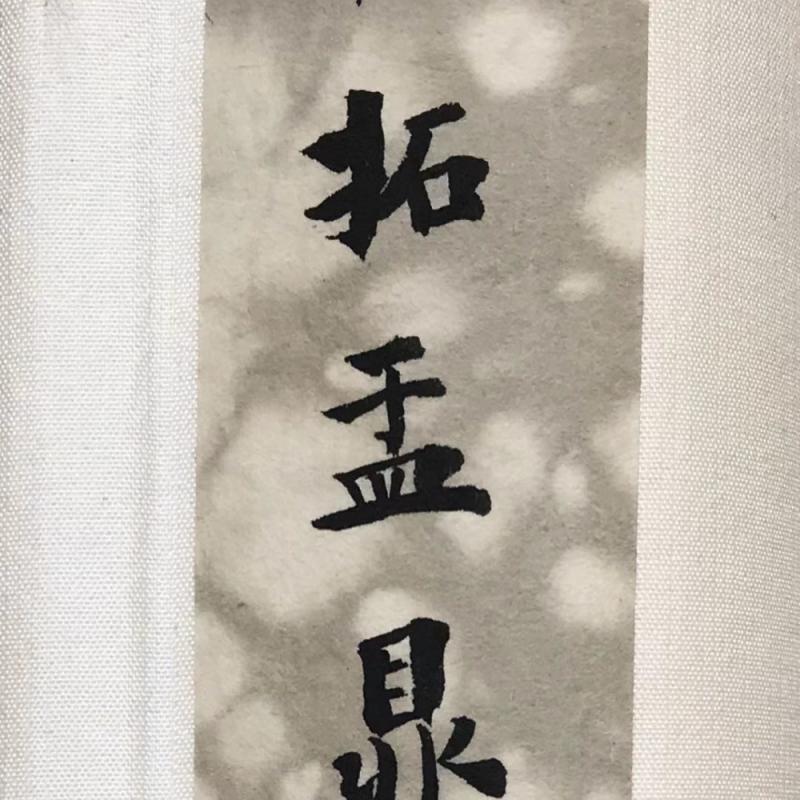 拓盂鼎